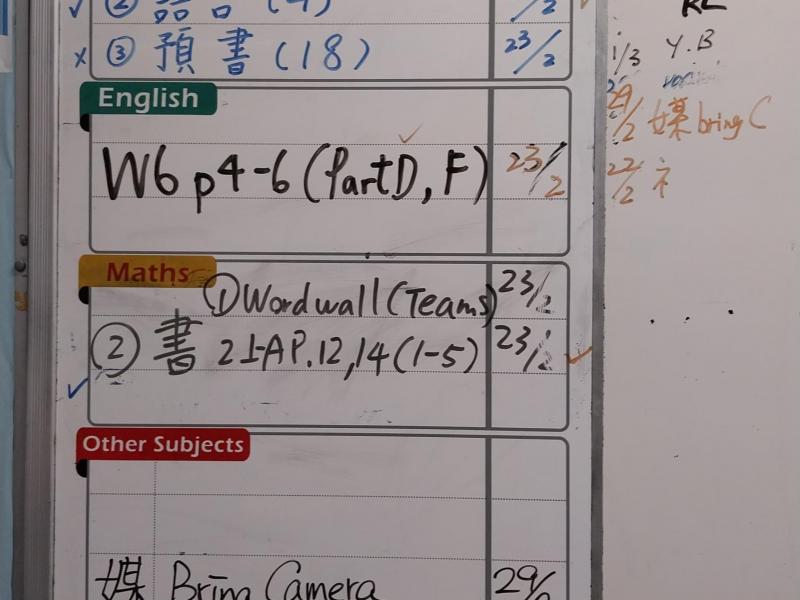 ✓ ② (4) /2
x ③ 預書(18) 23/2
English
W6 p4-6 (Part D, F) 23/2
Maths
① Wordwall (Teams) 23/2
② 書 2上A P.12,14 (1-5) 23/2
Other Subjects
媒 Bring Camera 29/
1/3 Y.B
29/2 媒 bring C
22/2